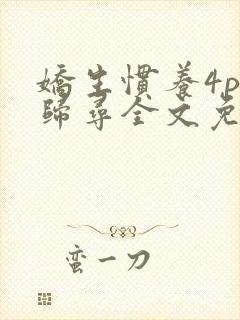 嬌生慣養4p
歸尋全文免
蛮一刀